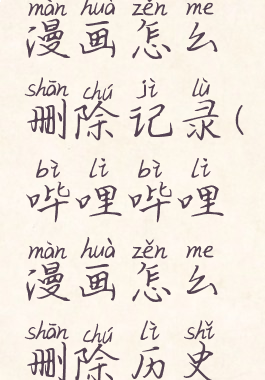 màn huà zěn me
漫画怎么
shān chú jì lù
删除记录(
bì lì bì lì
哔哩哔哩
màn huà zěn me
漫画怎么
shān chú lì shǐ
删除历史